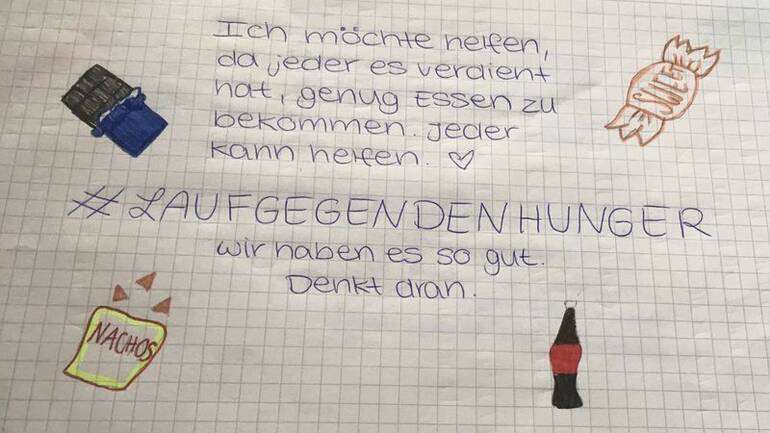 Ich möchte helfen,
da jeder es verdient
hat, genug Essen zu
bekommen. Jeder
kann helfen. ♡
SWEET
#LAUFGEGENDENHUNGER
wir haben es so gut.
Denkt dran.
NACHOS